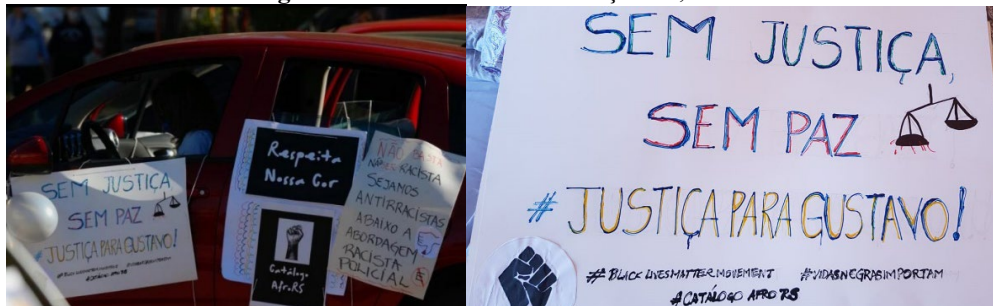 SEM JUSTIÇA
SEM PAZ
#JUSTIÇA PARA GUSTAVO!
Respeita
Nossa Cor
Catálogo
AfroRS
NÃO BASTA
NÃO RACISTA
SEJAMOS
ANTIRRACISTAS
ABAIXO A
ABORDAGEM
RACISTA
POLICIAL
SEM JUSTIÇA,
SEM PAZ
# JUSTIÇA PARA GUSTAVO!
# BLACK LIVES MATTER MOVEMENT #VIDASNEGRASIMPORTAM
#CATÁLOGO AFRO RS